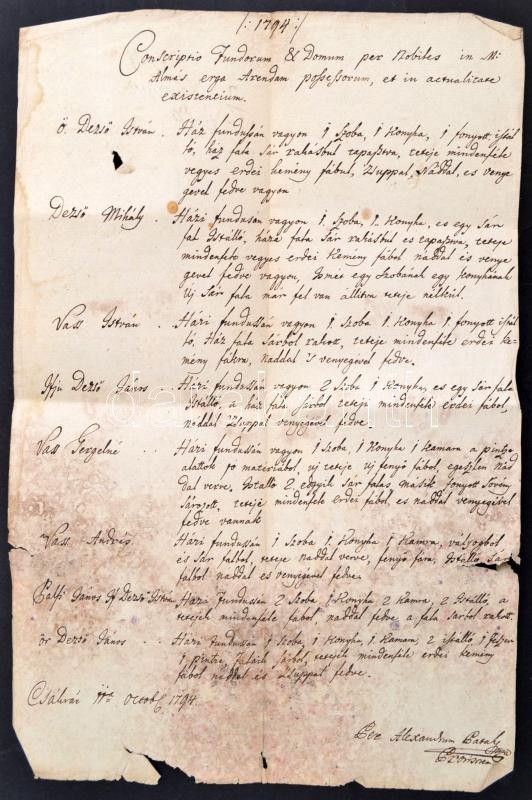 /: 1794 :/
Conscriptio Fundorum & Domum per Nobiles in M:
Almás erga Arendam possessorum, et in actualitate
existentium.
Ö. Dezső István. Ház fundussán vagyon 1 Szoba, 1 Konyha, 1 fonyott istál
ló, ház fala Sár rakásbul tapasztva, teteje mindenféle
vegyes erdei kemény fábul, 'Suppal, Náddal, és venye
gével fedve vagyon
Dezső Mihály. Házi fundusán vagyon 1. Szoba, 1. Konyha, es egy Sár
fal Istálló, háza fala Sár rakástul és tapasztva, teteje
mindenfele vegyes erdei Kemény fábol náddal és venye
gével fedve vagyon, Ismét egy Szobának egy konyhának
Új Sár fala már fel van állitva teteje nélkül.
Vass István. Házi fundussán vagyon 1 Szoba 1 Konyha 1 fonyott istál
ló, Ház fala Sárbol rakott, teteje mindenféle erdei ke-
mény fákra, náddal 's venyegével fedve.
Ifju Dezső János. Házi fundussán vagyon 2 Szoba 1 Konyha, es egy Sár fala
Istálló, a ház fala Sárbol teteje mindenféle erdei fábol,
náddal 'Suppal venyegével fedve
Vass Gergelné .. Házi fundussán vagyon 1 Szoba, 1 Konyha 1 Kamara a pintze
alattok jo materiábol, új teteje új fenyö fábol, egészlen nád
dal verve. Istálló 2 egyik Sár falas másik fonyott Sövény
Sározott, teteje mindenféle erdei fábol, es náddal venyegével
fedve vannak
Vass András Házi fundussán 1 Szoba 1 Konyha 1 Kamra, valyogbol
és Sár falbol, teteje náddal verve, fenyő fára, Istálló Sár
falbol náddal es venyegével fedve.
Pálfi János Ifj Dezső István Házi Fundussán 2 Szoba 1 Konyha 2 Kamra, 2 Istálló, a
tetejek mindenféle fábol, náddal fedve a fala Sárbol rakott.
ör Dezső János .. Házi fundussán 1 Szoba, 1 Konyha, 1. Kamara, 2 istálló 1
1 pintze, falaik Sárbol, tetejek mindenféle erdei kemény
fábol náddal és 'Suppal fedve.
Csákvár 11a Octob 1794
Per Alexandrum Pataky